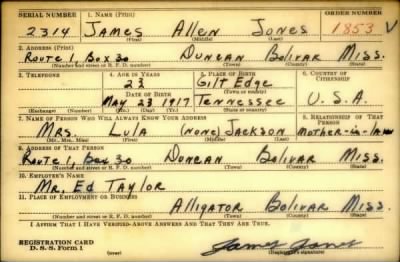 SERIAL NUMBER 1. NAME (Print) ORDER NUMBER
2314 JAMES Allen Jones 1853 V
(First) (Middle) (Last)
2. ADDRESS (Print)
Route 1, Box 30 Duncan Bolivar Miss.
(Number and street or R. F. D. number) (Town) (County) (State)
3. TELEPHONE 4. AGE IN YEARS 5. PLACE OF BIRTH 6. COUNTRY OF CITIZENSHIP
23 Gilt Edge
DATE OF BIRTH (Town or county)
May 23 1917 Tennessee U.S.A.
(Exchange) (Number) (Mo.) (Day) (Yr.) (State or country)
7. NAME OF PERSON WHO WILL ALWAYS KNOW YOUR ADDRESS 8. RELATIONSHIP OF THAT PERSON
Mrs. Lula (None) Jackson Mother-in-law
(Mr., Mrs., Miss) (First) (Middle) (Last)
9. ADDRESS OF THAT PERSON
Route 1, Box 30 Duncan Bolivar Miss.
(Number and street or R. F. D. number) (Town) (County) (State)
10. EMPLOYER'S NAME
Mr. Ed Taylor
11. PLACE OF EMPLOYMENT OR BUSINESS
Alligator Bolivar Miss.
(Number and street or R. F. D. number) (Town) (County) (State)
I AFFIRM THAT I HAVE VERIFIED ABOVE ANSWERS AND THAT THEY ARE TRUE.
REGISTRATION CARD
D. S. S. Form 1 James Jones
(Registrant's signature)